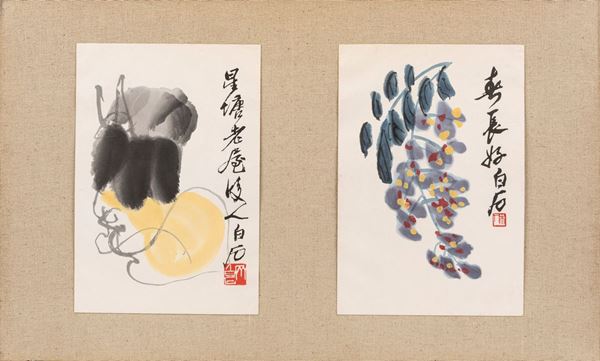 星塘老屋後人白石
春長好白石